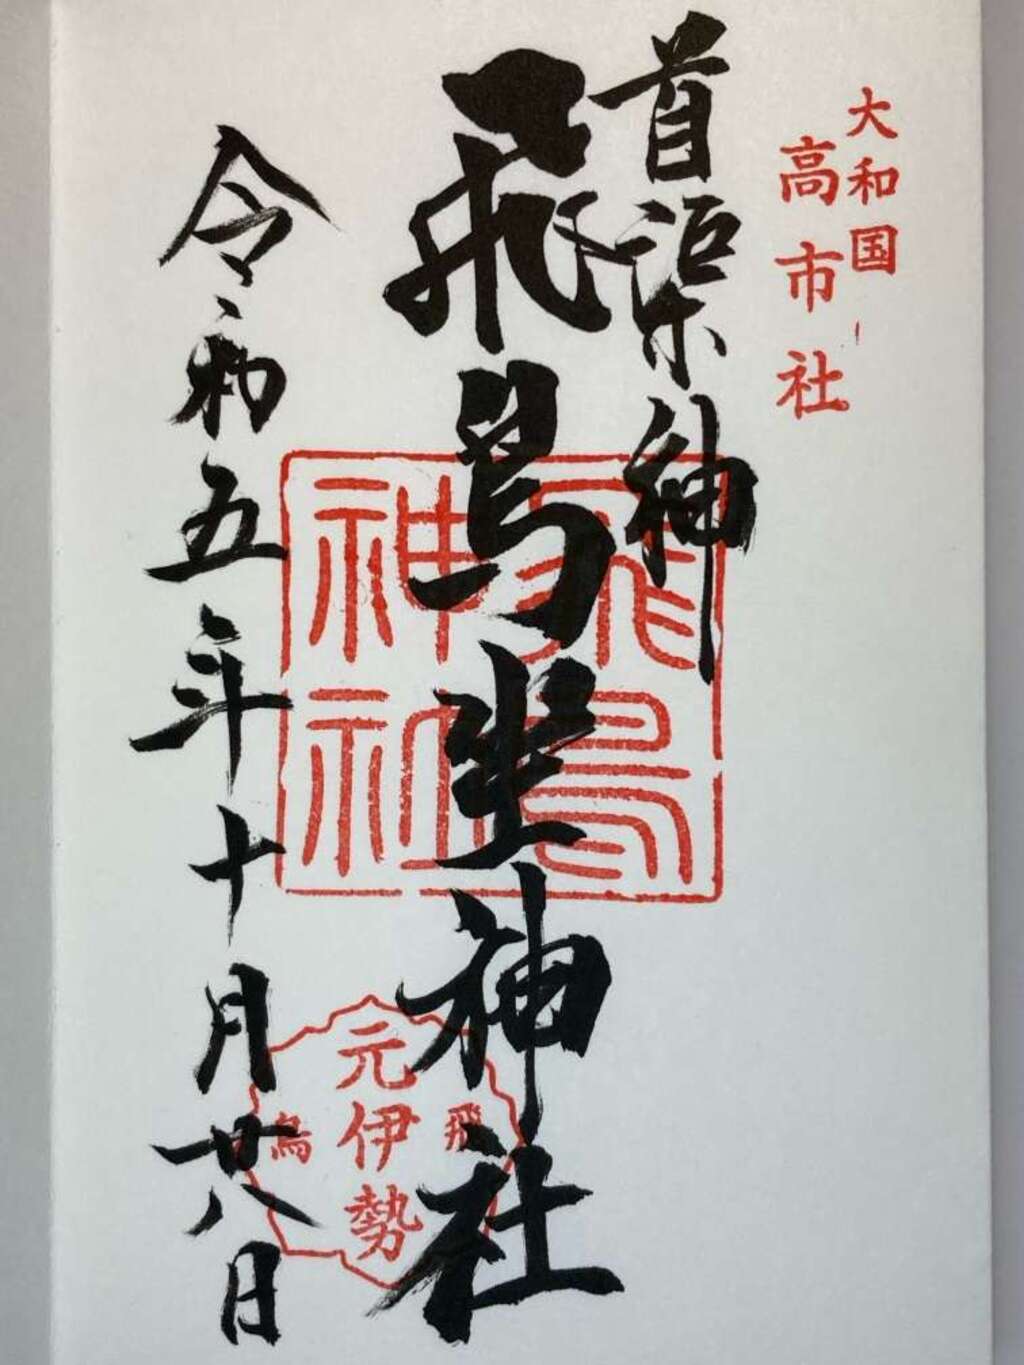 大和国
高市社
首渠神
飛鳥坐神社
飛鳥
神社
飛
元伊勢
鳥
令和五年十月廿八日